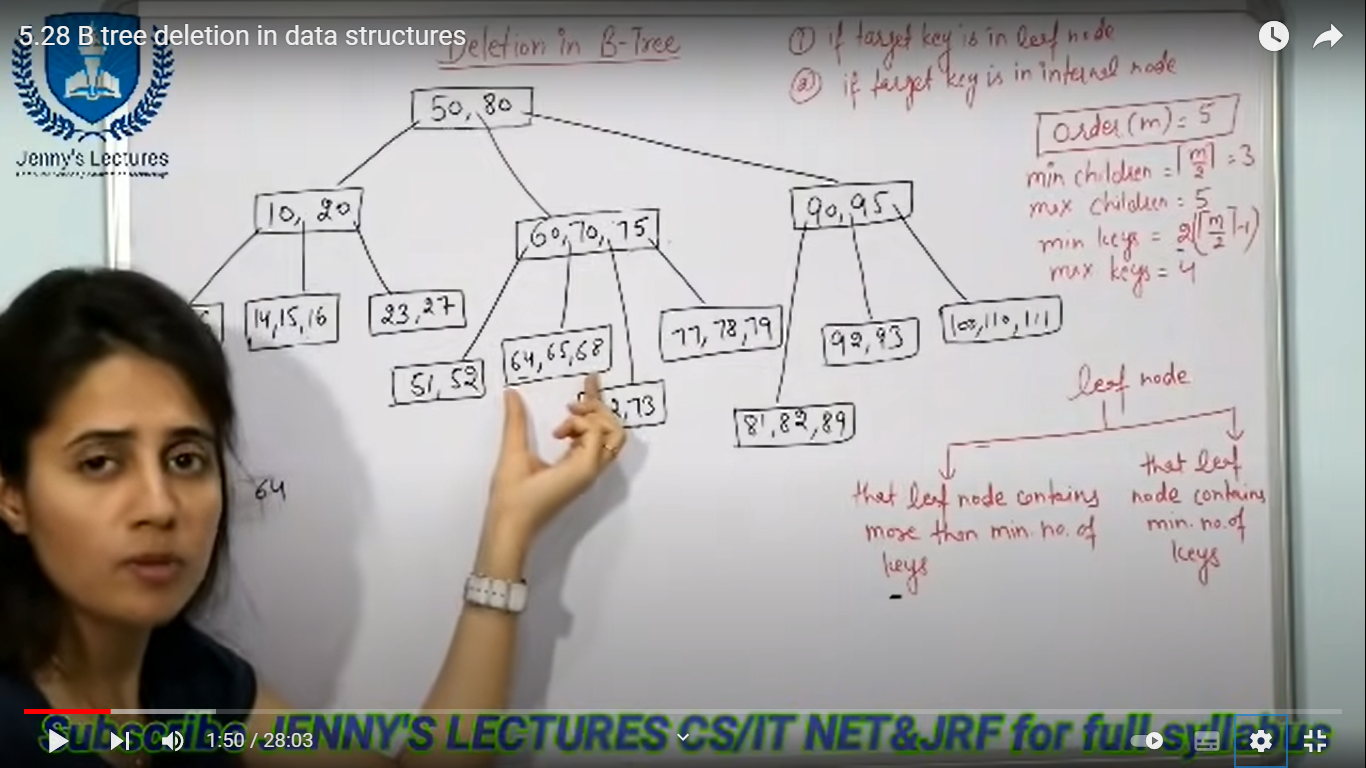 5.28 B tree deletion in data structures
Deletion in B-Tree
① if target key is in leaf node
② if target key is in internal node
Jenny's Lectures
50, 80
Order(m) = 5
min children = ⌈m/2⌉ = 3
max children = 5
min keys = 2(⌈m/2⌉-1)
max keys = 4
10, 20
60, 70, 75
90, 95
14, 15, 16
23, 27
51, 52
64, 65, 68
77, 78, 79
92, 93
100, 110, 111
73
81, 82, 89
leaf node
that leaf node contains
more than min. no. of
keys
that leaf
node contains
min. no. of
keys
64
Subscribe JENNY'S LECTURES CS/IT NET&JRF for full syllabus
1:50 / 28:03